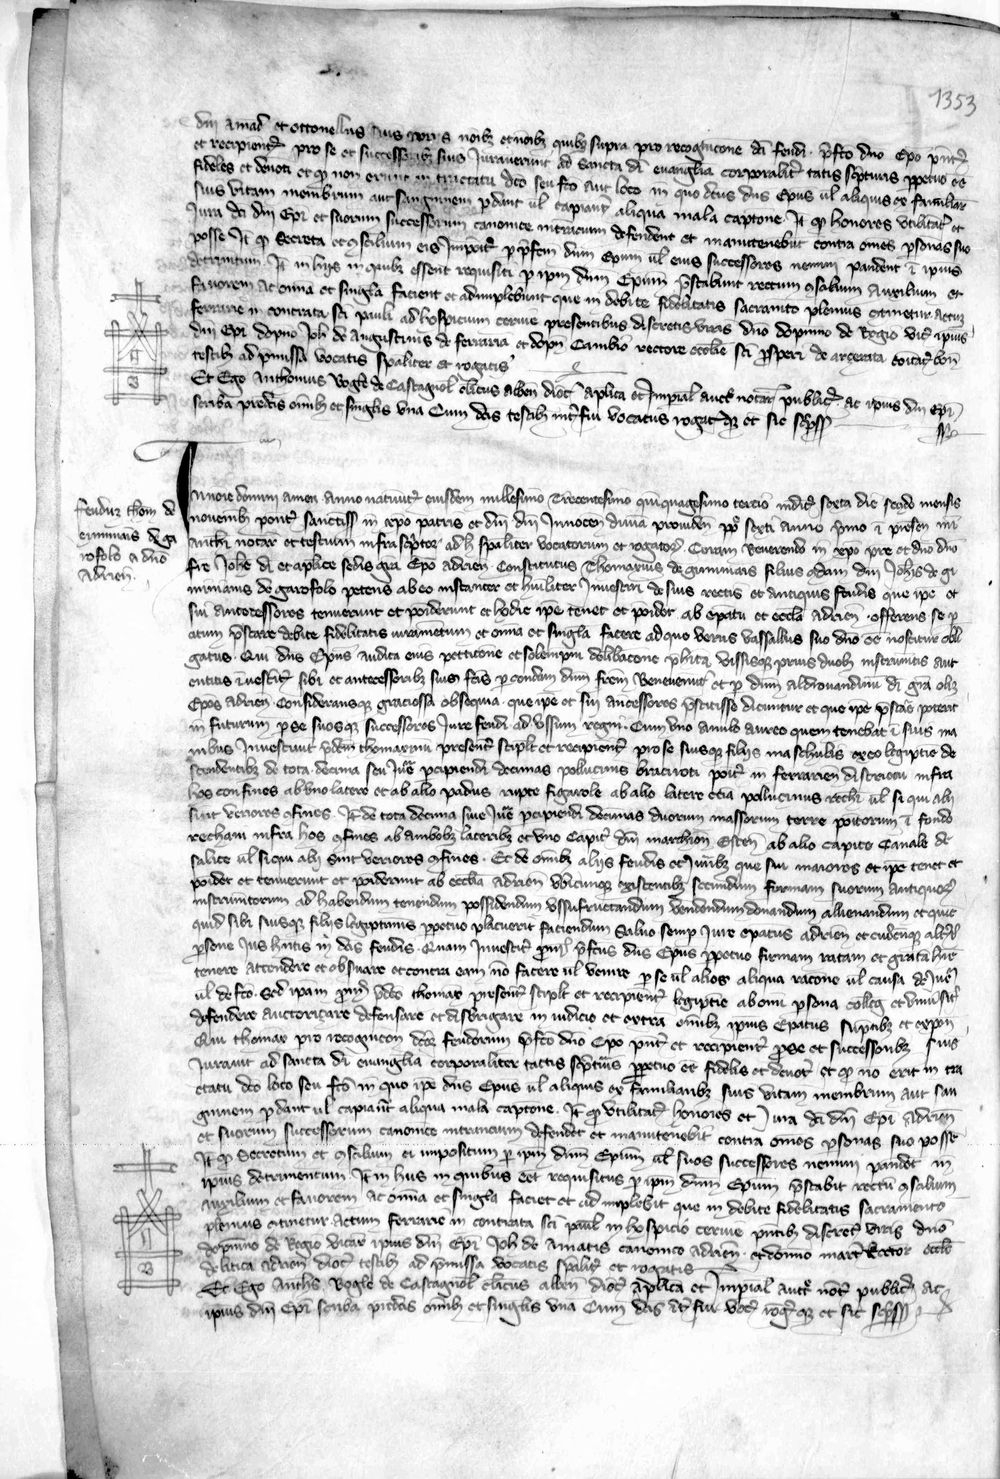 1353
dni Amad et ottonellus suis noibz et noibz quibz supra pro recognicone dci feudi. pfcto dno Epo pntr
et recipientr pro se et successoribz suis Juraverunt ad sancta di evanglia corporalitr tatis scpturis ppetuo ee
fideles et devoti et qd non erunt in tractatu dco seu fcto aut loco in quo dctus dns Epus ul aliquis ex familiar
suis vitam membrum aut sanguinem pdant ul capiant aliqua mala captone. It qd honores utilitatr et
Jura dci dni Epi et suorum successorum canonice intrancium defendent et manutenebut contra omes psonas suo
posse It qd secreta et gsilium eis Imposit p pfcm dnm Epum ul eius successores nemini pandent i ipius
detrimentum. It in hijs in quibz essent requisiti p ipm dnm Epum pstabunt rectum gsilium Auxilium et
favorem Ac omia et singla facient et adimplebunt que in debite fidelitatis sacramto plenius gtinetur Actuz
ferrarie in contrata sci pauli ad hospicium cerve presentibus discretis viris dno dopnino de Regio vicr ipius
dni Epi dopno Joh de Augustinis de ferraria et dopn Cambio rectore ecclie sci psperi de
testibz ad pmissa vocatis spaliter et rogatis
Et Ego Anthonius Rogle de Castagnol clicus Alben dioc Aplica et Impial Auctr notar publicr. Ac ipius dni Epi
scriba predcis omibz et singlis una Cum dcis testibz intr fui vocatus rogatr qz et sic scpss
feudur thom de
giminanis de ga
rofolo a dno
Adrien.
In noie domini amen. Anno nativitr eiusdem millesimo Trecentesimo quinquagesimo tercio indicr sexta die scdo mensis
novembr pontr sanctiss in xpo patris et dni dni Innocen divia providen pp sexti Anno pmo i presen mi
Anthi notar et testium infrascptor ad h spaliter vocatorum et rogator. Coram Venerendo in xpo pre et dno dno
fre Johe di et aplice sedis gra Epo adrien. Constitutus Thomaxius de giminanis filius qdam dni Johis de gi
minanis de garofolo petens ab eo instanter et huiliter Investiri de suis rectis et antiquis feudis que ipe et
sui antecessores tenuerunt et possederunt et hodie ipe tenet et possidet ab epatu et ecclia adrien. offerens se p
atum pstare debite fidelitatis iuramentum et omia et singla facere ad que verus vassallus suo dno ee noscitur obli
gatus. Qui dns Epus audita eius petitione et solempni delibacone phita vissisque prius duobz instrumtis aut
enticis investitr sibi et antecessoribz suis fcis p condam dnm frem Benevenut et p dnm aldrovandinu di gra olim
Epos adrien. Consideransque graciossa obsequia. que ipe et sui ancessores pstitisse dicuntur et que ipe pstare poterit
in futurum p se suosque successores Jure feudi ad ussum regni. Cum uno anulo aureo quem tenebat i suis ma
nibus Investivit pdcm thomaxinu presente sciplt et recipientr pro se suisque filijs maschulis ex eo legiptie de
scendentibz de tota decima seu Jure pcipiendi decimas pollucinis braciroti poitr in ferrarien districtu infra
hos confines ab uno latere et ab alio padus rupte figarole ab alio latere ecia pollucinus rechi ul si qui alij
sint veriores gfines. It de tota decima sive Jure pcipiendi decimas duorum massorum terre poitorum i fondo
rechani infra hos gfines ab ambobz lateribz et uno Capitr dni marchion Esten ab alio capite Canale de
salice ul si qui alij sint veriores gfines. Et de omibz alijs feudis et Juribz que sui maiores et ipe tenet et
possidet et tenuerunt et possiderunt ab ecclia adrien ubicunque existentibz secundum formam suorum Antiquorz
instrumtorum ad habendum tenendum possidendum ussufructandum vendendum donandum allienandum et quic
quid sibi suisque filijs legiptimis ppetuo placuerit faciendum Salvo semp Jure epatus adrien et cuiuscunque altri
psone Jus hntis in dcis feudis. Quam Investitr pmisit pfctus dns Epus ppetuo firmam ratam et gratam hre
tenere attendere et obsvare et contra eam no facere ul venire p se ul alios aliqua racone ul causa de Jure
ul de fcto. Sed ipam pmisit pdco thomax presente sciplt et recipientr legiptie ab omi psona collegr et univsit
defendere auctorizare defensare et disbrigare in iudicio et extra omibz ipius Epatus suptibz et expen
Qui thomax pro recognicon dcor feudorum pfcto dno Epo pntr et recipientr pro se et successoribz suis
Juravit ad sancta di evanglia corporaliter tactis scpturis ppetuo ee fidelis et devotr et qd no erit in tra
ctatu dco loco seu fcto in quo ipe dns Epus ul aliquis ex familiaribz suis vitam membrum aut san
guinem pdant ul capiant aliqua mala captone. It qd utilitatr honores et Jura dci dni Epi adrien
et suorum successorum canonice intrancium defendet et manutenebit contra omes psonas suo posse
It qd secretum et gsilium ei impositum p ipm dnm Epum ul suos successores nemini pandet in
ipius detrimentum. It in hiis in quibus eet requisitus p ipm dnm Epum pstabit rectu gsilium
auxilium et favorem Ac omia et singla faciet et adimplebit que in debite fidelitatis sacramento
plenius gtinetur. Actum ferrarie in contrata sci pauli in hospicio cerve pntibz discretr viris dno
dopnino de Regio vicar ipius dni Epi Joh de Amatis canonico adrien. et domno mart Rector ecclie
adrien dioc testibz ad pmissa vocatis spalitr et rogatis
Et Ego Anths Rogle de Castagnol clicus alben dioc aplica et Impial auctr notr publicr Ac
ipius dni Epi scriba predcis omibz et singlis una Cum dcis itr fui vocr rogr qz et sic scpss